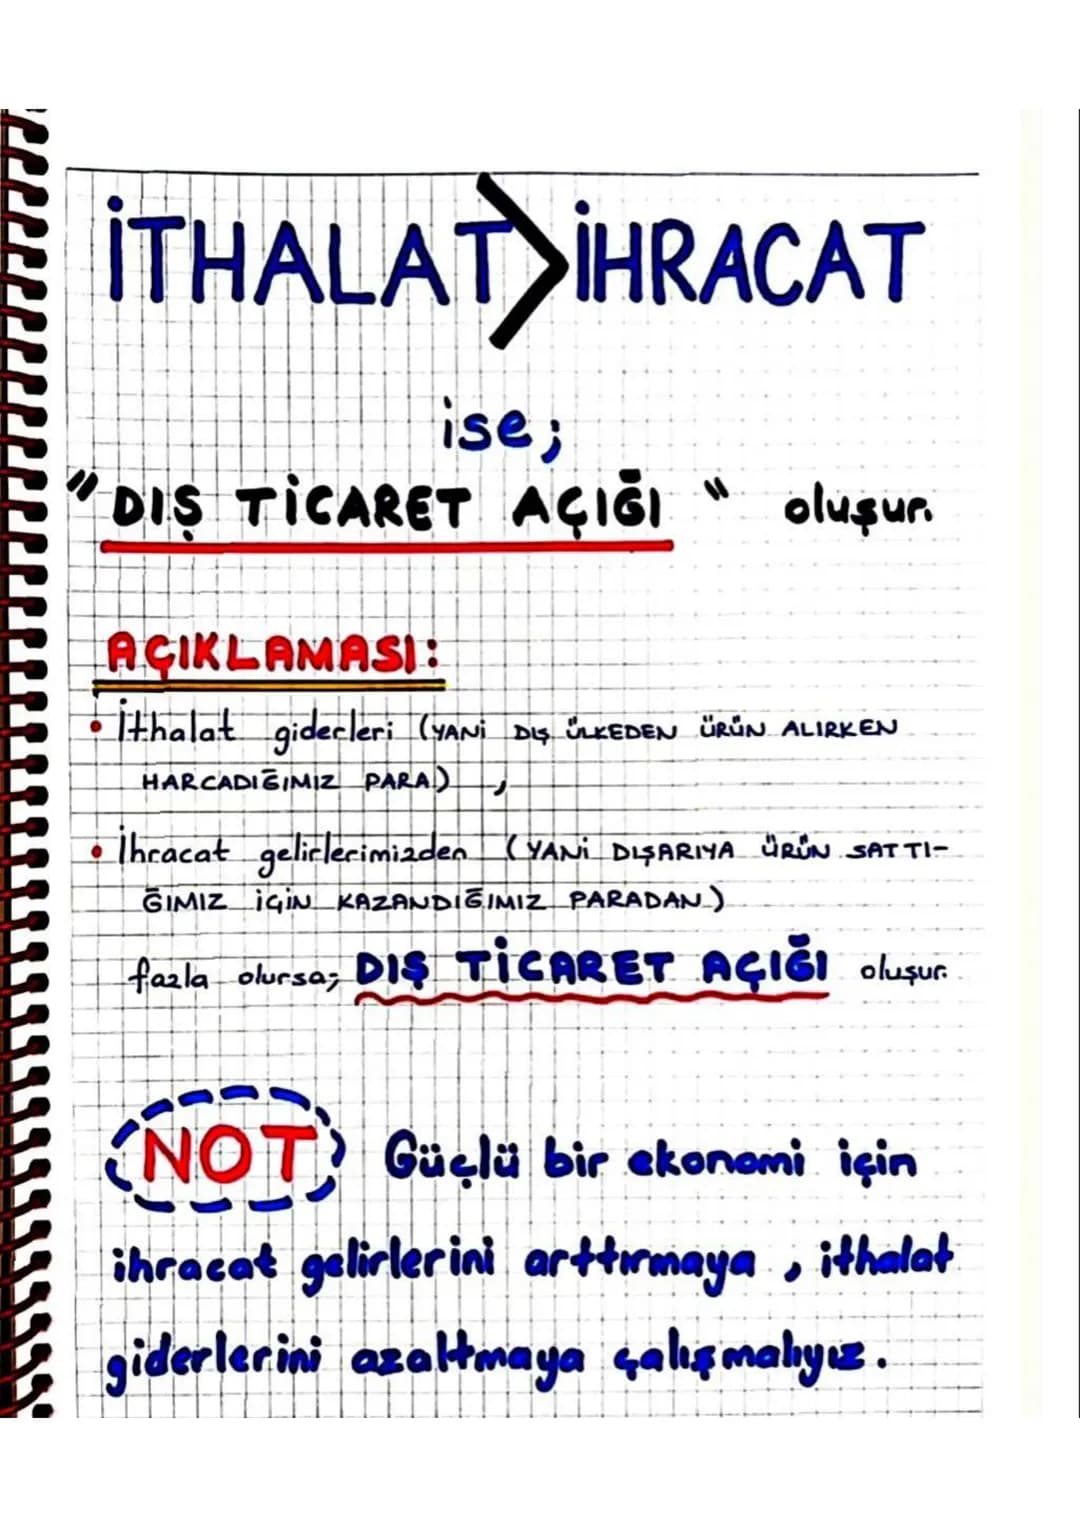 İTHALAT>İHRACAT
ise;
"DIŞ TİCARET AÇIĞI" oluşur.
AÇIKLAMASI:
• İthalat giderleri (YANİ DIŞ ÜLKEDEN ÜRÜN ALIRKEN
HARCADIĞIMIZ PARA) ,
• İhracat gelirlerimizden (YANİ DIŞARIYA ÜRÜN SATTI-
ĞIMIZ İÇİN KAZANDIĞIMIZ PARADAN)
fazla olursa; DIŞ TİCARET AÇIĞI oluşur.
NOT Güçlü bir ekonomi için
ihracat gelirlerini arttırmaya , ithalat
giderlerini azaltmaya çalışmalıyız.